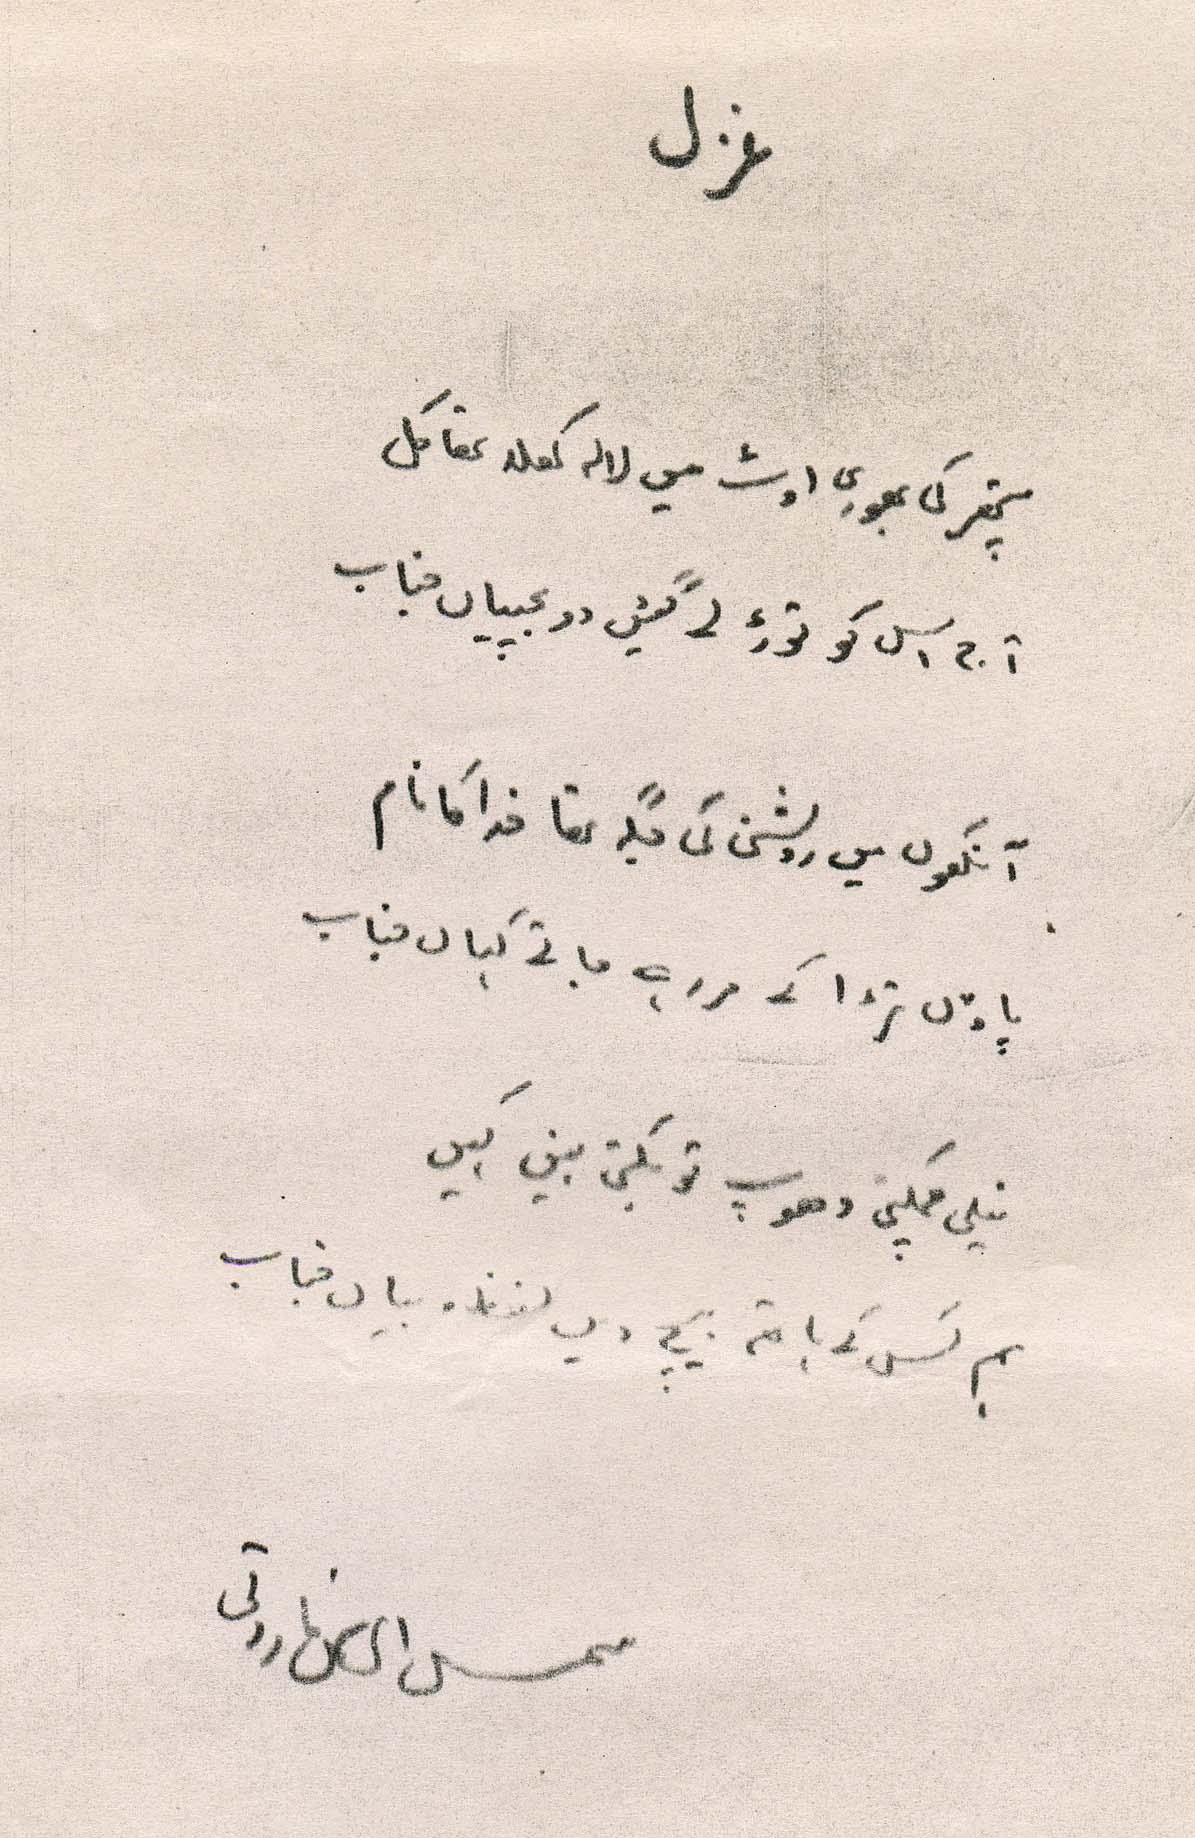 غزل
پتھر کی بھوری اوٹ میں لالہ کھلا تھا کل
آج اس کو توڑ لے گئیں دو بچیاں جناب
آنکھوں میں روشنی کی جگہ تھا خدا کا نام
پاؤں تڑا کے مر رہے جاتے کہاں جناب
نیلی چمکتی دھوپ تو بکتی نہیں کہیں
ہم کس کے ہاتھ بیچ دیں لفظ بیاں جناب
شمس الرحمٰن فاروقی